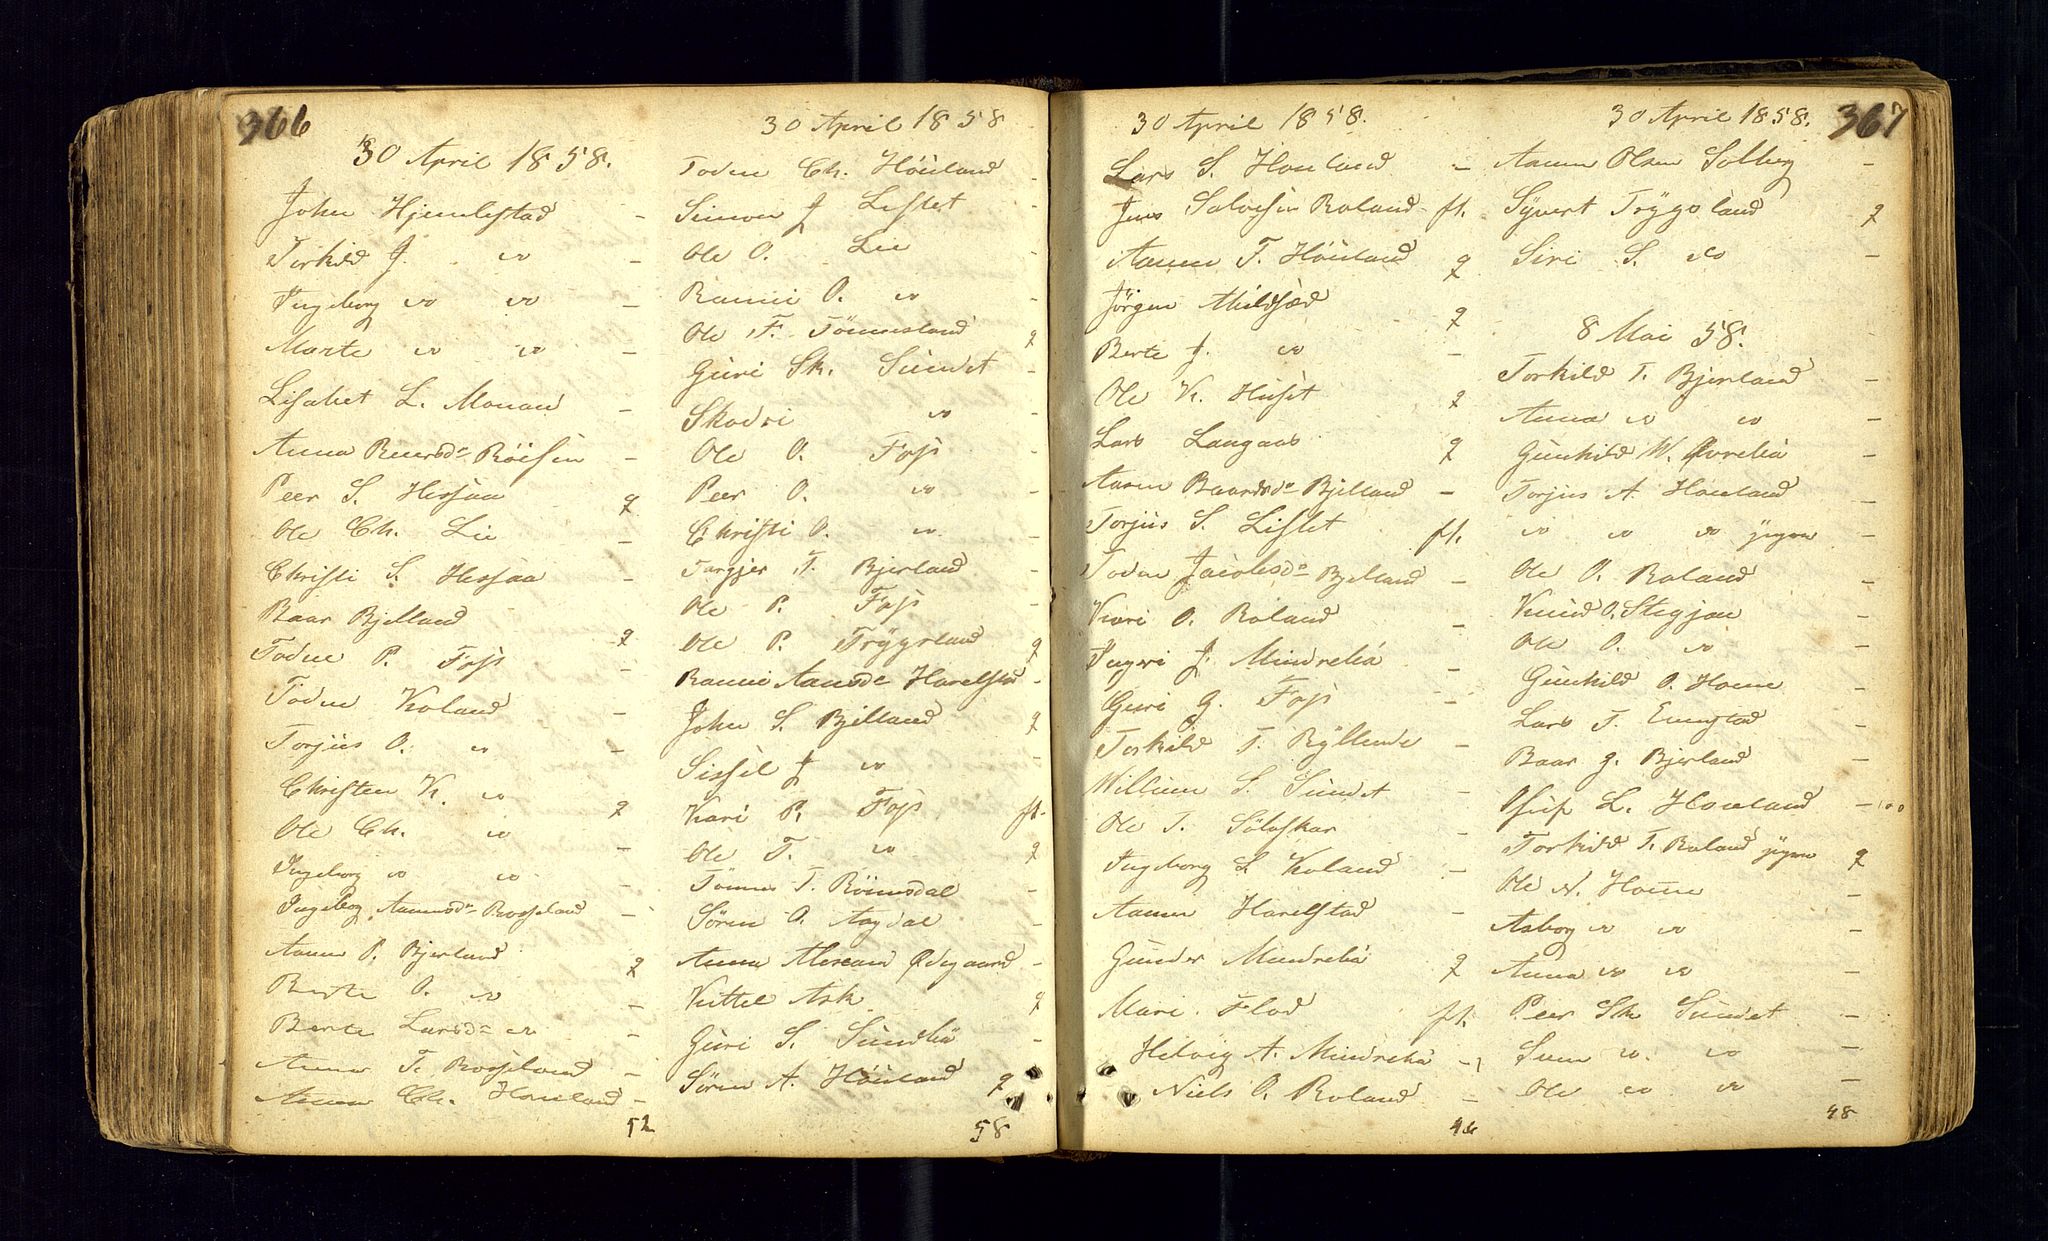 366
30 April 1858.
John Hjemlestad -
Torkild J. do -
Ingeborg do do -
Marte do do -
Lisabet L. Monan -
Anna Reiersdr Röisen -
Peer S. Hessaa g
Ole Ch. Lie -
Christi S. Hessaa -
Baar Bjelland g
Todne P. Foss -
Todne Roland -
Torjus O. do -
Christen K. do g
Ole Ch. do -
Ingeborg do do -
Ingeborg Aanensdr Rosseland -
Aanen P. Bjerland g
Berte O. do -
Berte Larsdr do -
Anna T. Rosseland -
Aanen Ch. Houland -
52
30 April 1858
Todne Ch. Höiland -
Simon J Listet -
Ole O. Lie -
Rannei O. do -
Ole F. Tönnesland g
Guri Sk. Sundet -
Skodvi do -
Ole O. Foss -
Peer O. do -
Christi O. do -
Targjer T. Bjerland -
Ole P. Foss -
Ole P. Tryggsland g
Rannei Aansdr Harelstad -
John S. Bjelland g
Sissel J do -
Kari P. Foss ft.
Ole T. do g
Tönnes T. Römsdal -
Sören O. Aagdal -
Anna Alexand Ødegaard -
Kittel Ask g
Guri S. Sundliä -
Sören A. Höiland g
58
30 April 1858.
Lars S. Houland -
Jens Salvesen Roland ft.
Aanen T. Höiland g
Jörgen Mildsæd g
Berte J. do -
Ole K. Huset g
Lars Langaas g
Aasen Baardsdr Bjelland -
Torjus S. Listet ft.
Todne Jacobsdr Bjelland -
Kari O. Roland -
Ingri J. Mindreliä -
Guri G. Foss -
Torkild T. Röllende -
Willum S. Sundet -
Ole T. Sölvskar -
Ingeborg L Roland -
Aanen Harelstad -
Gunder Mindreliä g
Mari Flad ft.
Helvig A. Mindreliä -
Niels O. Roland -
46
30 April 1858. 367
Aanen Olsen Solberg -
Syvert Tryggsland g
Siri S. do -
8 Mai 58.
Torkild T. Bjerland -
Anna do do -
Gunhild W. Øvreliä -
Torjus A. Houland -
do do do jngre -
Ole O. Roland -
Knud O. Stegjan -
Ole O. do -
Gunhild O. Homme -
Lars T. -
Baar G. Bjerland -
Osuf L. Houland -
Torkild T. Roland jngre g
Ole N. Homme -
Asborg do do -
Anna do do -
Peer Sk Sundet -
do do -
Ole do do -
48